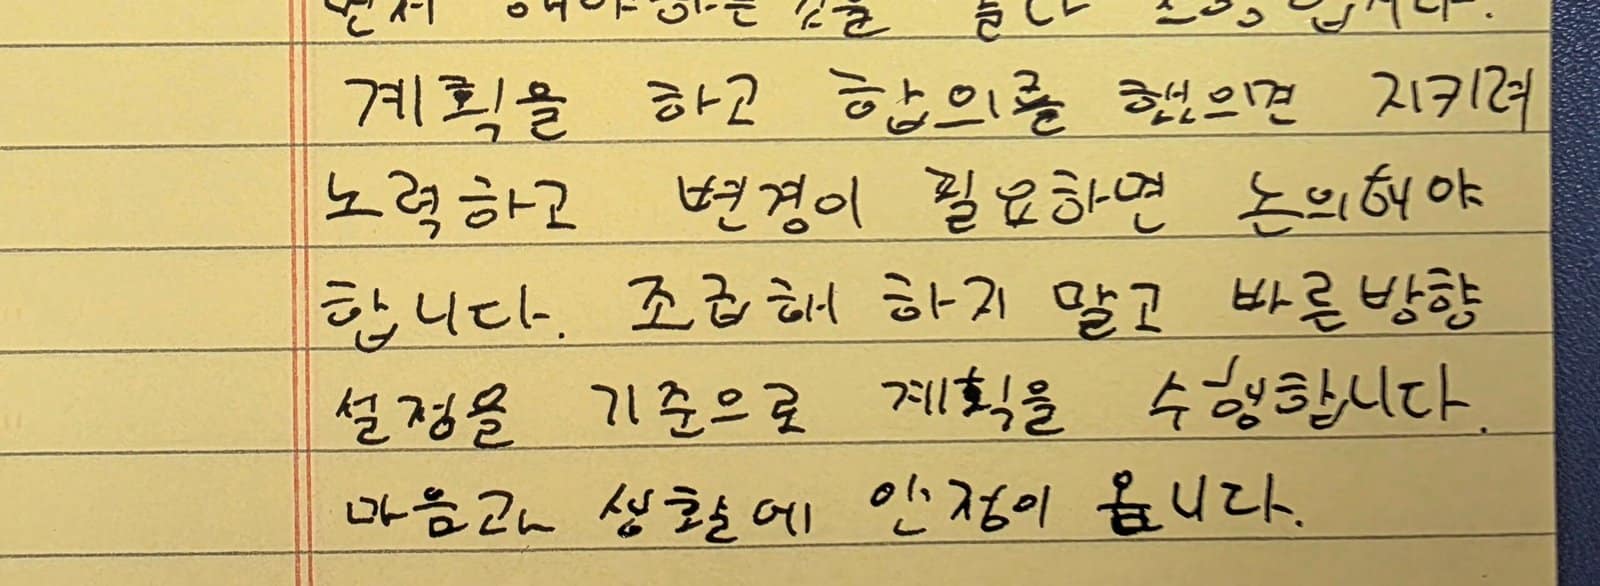 먼저 해야하는 것을 골라 진행합니다.
계획을 하고 합의를 했으면 지키려
노력하고 변경이 필요하면 논의해야
합니다. 조급해 하지 말고 바른방향
설정을 기준으로 계획을 수행합니다.
마음과 생활에 안정이 옵니다.